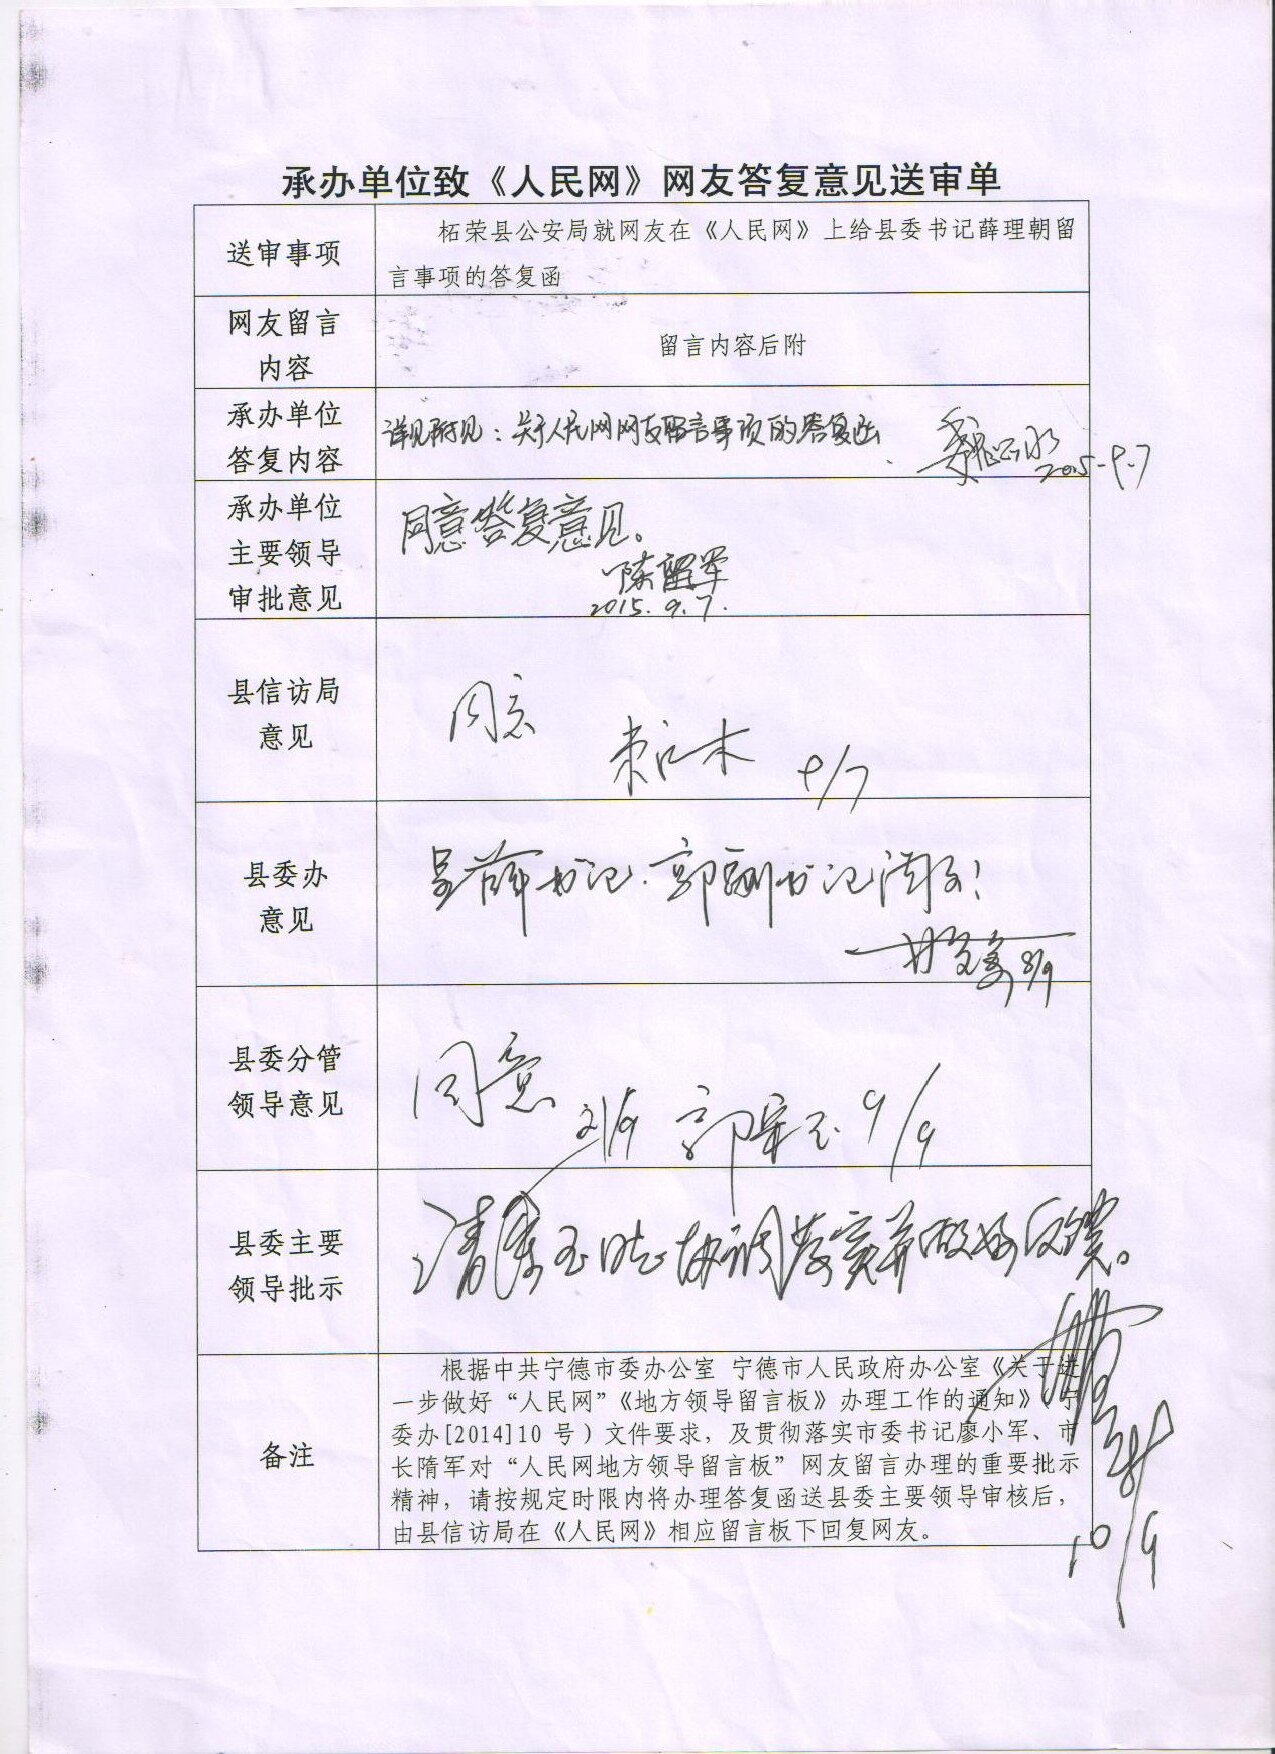 承办单位致《人民网》网友答复意见送审单
送审事项
柘荣县公安局就网友在《人民网》上给县委书记薛理朝留
言事项的答复函
网友留言
内容
留言内容后附
承办单位
答复内容
详见附见：关于人民网网友留言事项的答复函
2015.9.7
承办单位
主要领导
审批意见
同意答复意见。
陈留军
2015.9.7.
县信访局
意见
同意
9/7
县委办
意见
呈薛书记、郭副书记阅示！
8/9
县委分管
领导意见
同意
9/9
县委主要
领导批示
协调落实并做好反馈。
10/9
备注
根据中共宁德市委办公室 宁德市人民政府办公室《关于进
一步做好“人民网”《地方领导留言板》办理工作的通知》（宁
委办[2014]10 号）文件要求，及贯彻落实市委书记廖小军、市
长隋军对“人民网地方领导留言板”网友留言办理的重要批示
精神，请按规定时限内将办理答复函送县委主要领导审核后，
由县信访局在《人民网》相应留言板下回复网友。